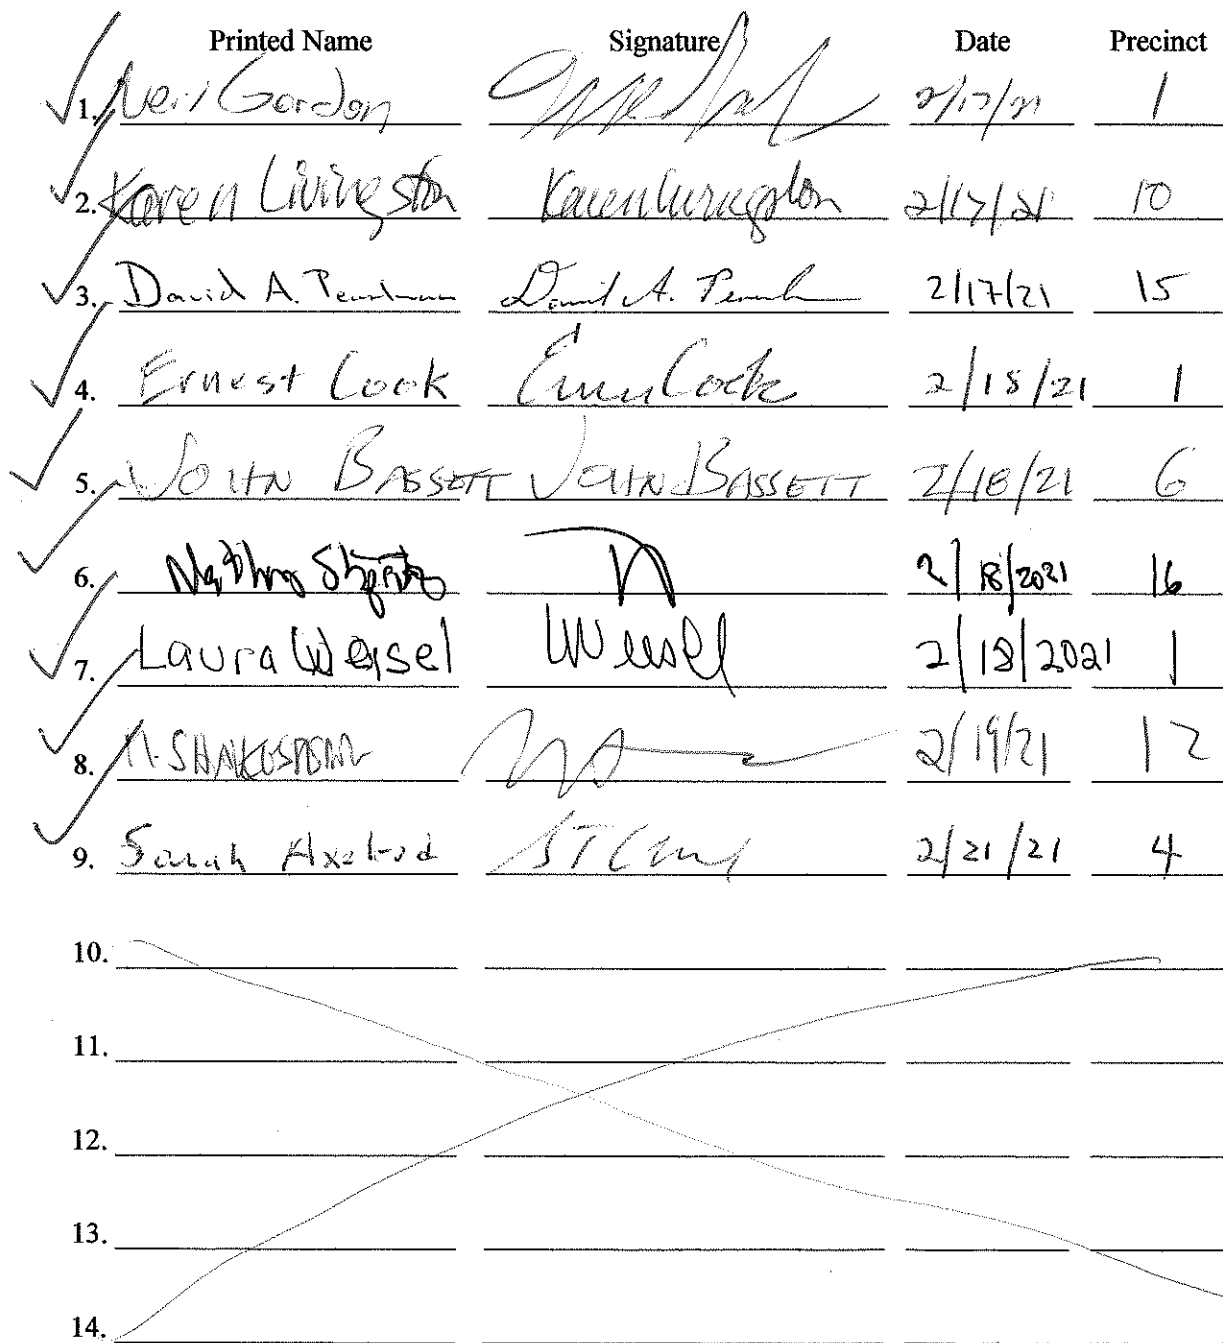 Printed Name Signature Date Precinct
1. Neil Gordon 2/17/21 1
2. Karen Livingston Karen Livingston 2/17/21 10
3. David A. David A. 2/17/21 15
4. Ernest Cook Cook 2/18/21 1
5. JOHN BASSETT JOHN BASSETT 2/18/21 6
6. 2/18/2021 16
7. Laura Weisel LWeisel 2/18/2021 1
8. 2/19/21 12
9. Sarah Axelrod 2/21/21 4
10.
11.
12.
13.
14.